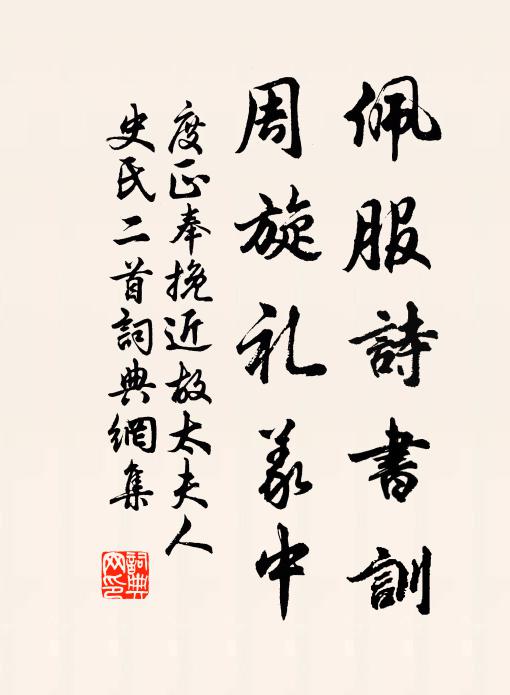 佩服詩書訓
周旋礼義中
度正奉挽近故太夫人
史氏二首詞典網集
詞典
网印